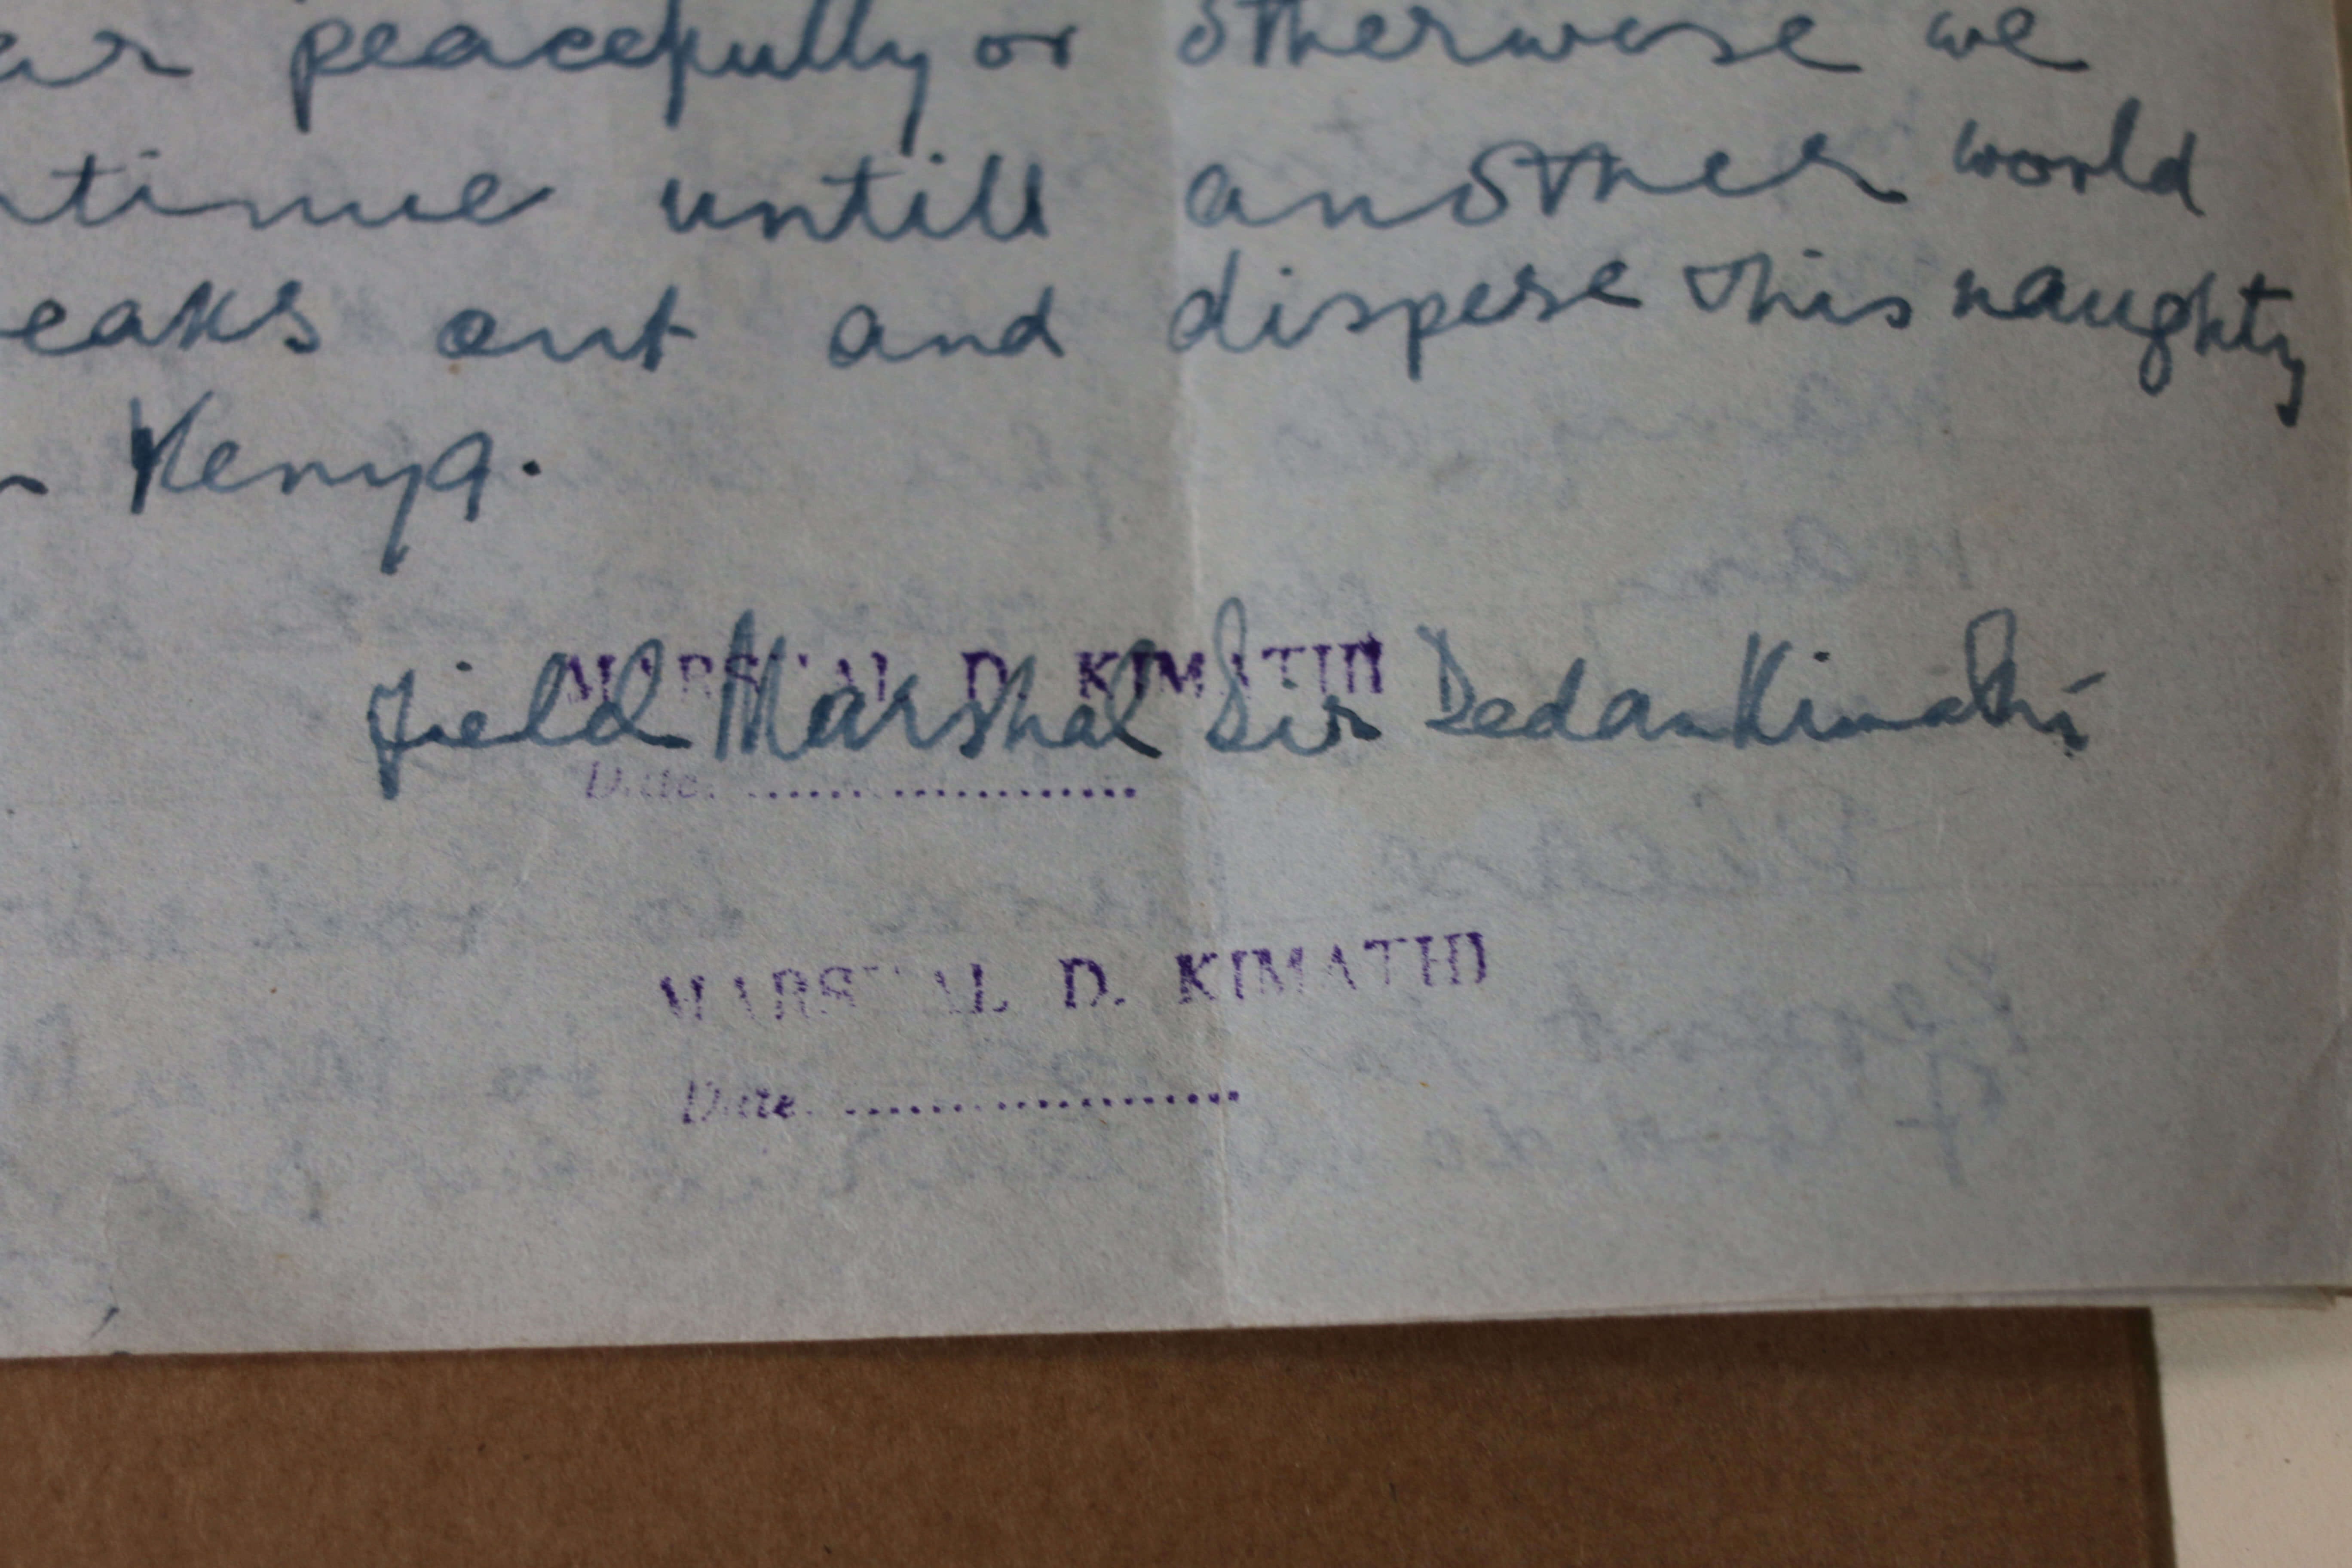 ar peacefully or otherwise we
ntinue untill another world
eaks out and disperse this naughty
n Kenya.
MARSHAL D. KIMATHI
Field Marshal Sir Dedan Kimathi
Date. ....................
MARSHAL D. KIMATHI
Date. ....................